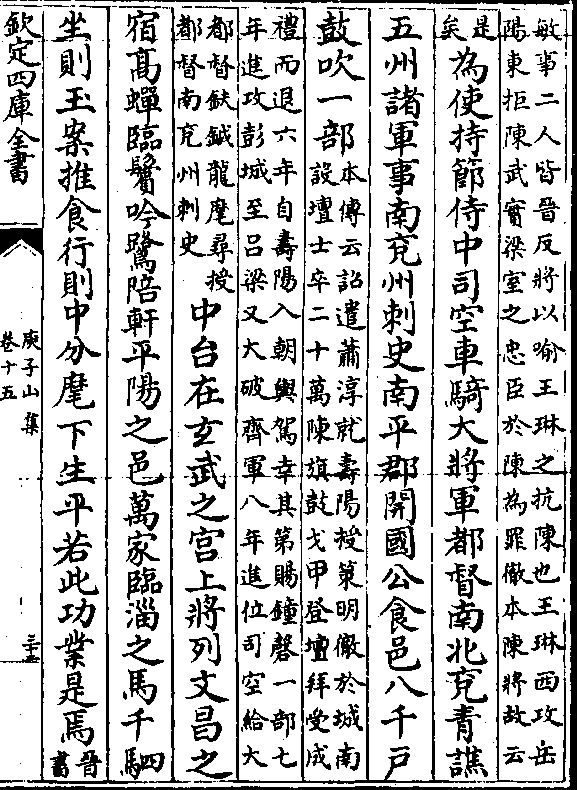 敏事二人皆晉反將以喻王琳之抗陳也王琳西攻岳
陽東拒陳武實梁室之忠臣於陳為罪徹本陳將故云
是矣為使持節侍中司空車騎大將軍都督南北兗青譙
五州諸軍事南兗州刺史南平郡開國公食邑八千戸
鼓吹一部本傳云詔遣蕭淳就壽陽授策明徹於城南
設壇士卒二十萬陳旗鼓戈甲登壇拜受成
禮而退六年自壽陽入朝輿駕幸其第賜鐘磬一部七
年進攻彭城至吕梁又大破齊軍八年進位司空給大
都督鈇鉞龍麾尋授
都督南兗州刺史中台在玄武之宫上將列文昌之
宿高蟬臨鬢吟鷺陪軒平陽之邑萬家臨淄之馬千駟
坐則玉案推食行則中分麾下生平若此功業是焉晉
書
欽定四庫全書
庾子山集
卷十五
三十五